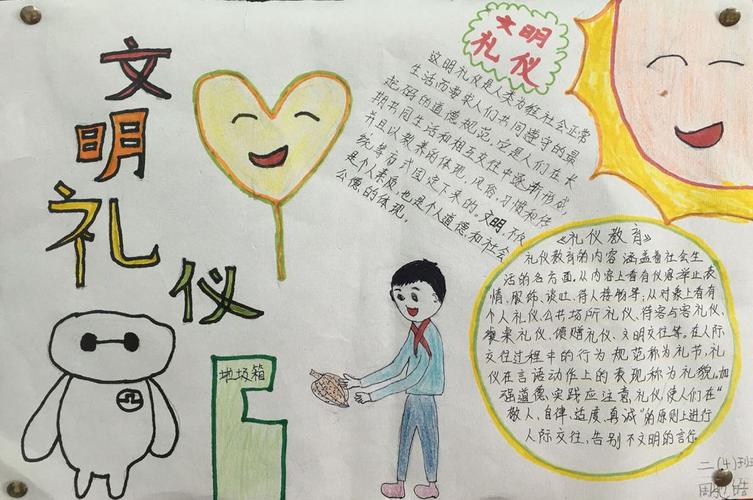 文明礼仪
文明
礼仪
这明礼仪是人类为维社会正常
生活而要求人们共同遵守的最
起码的道德规范，它是人们在长
期共同生活和相互交往中逐渐形成，
并且以
的体现，风俗、习惯和传
统等方式固定下来的，文明，不仅
是个人素质，也是个人道德和社会
公德的体现。
《礼仪教育》
礼仪教育的内容涵盖着社会生
活的各方面。从内容上看有仪容、举止、表
情、服饰、谈吐、待人接物等；从对象上看有
个人礼仪、公共场所礼仪、待客与客礼仪、
餐桌礼仪、馈赠礼仪、文明交往等。在人际
交往过程中的行为规范称为礼节，礼
仪在言语动作上的表现称为礼貌。加
强道德实践应注意，礼仪使人们在"
敬人、自律、适度、真诚"的原则上进行
人际交往，告别不文明的言行
垃圾箱
二(4)班
周
皓